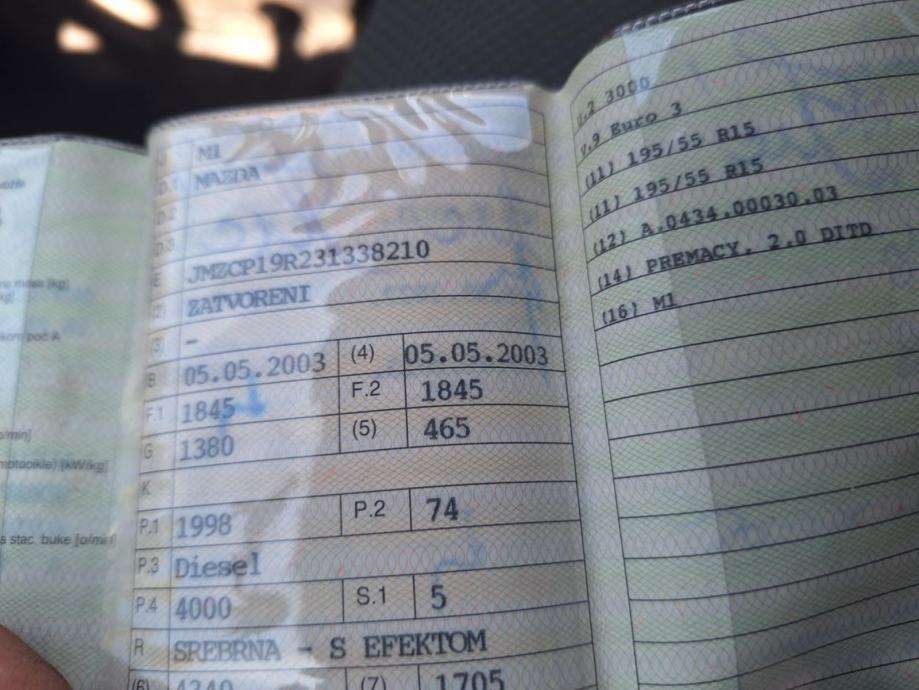 J M1
D.1 MAZDA
D.2
D.3
E JMZCP19R231338210
(2) ZATVORENI
(3) -
B 05.05.2003 (4) 05.05.2003
F.1 1845 F.2 1845
G 1380 (5) 465
K
P.1 1998 P.2 74
P.3 Diesel
P.4 4000 S.1 5
R SREBRNA - S EFEKTOM
(6) 4340 (7) 1705
U.2 3000
V.9 Euro 3
(11) 195/55 R15
(11) 195/55 R15
(12) A.0434.00030.03
(14) PREMACY. 2.0 DITD
(16) M1
mase [kg]
kg]
poč A
o/min]
motocikle) [kW/kg]
a stac. buke [o/min]